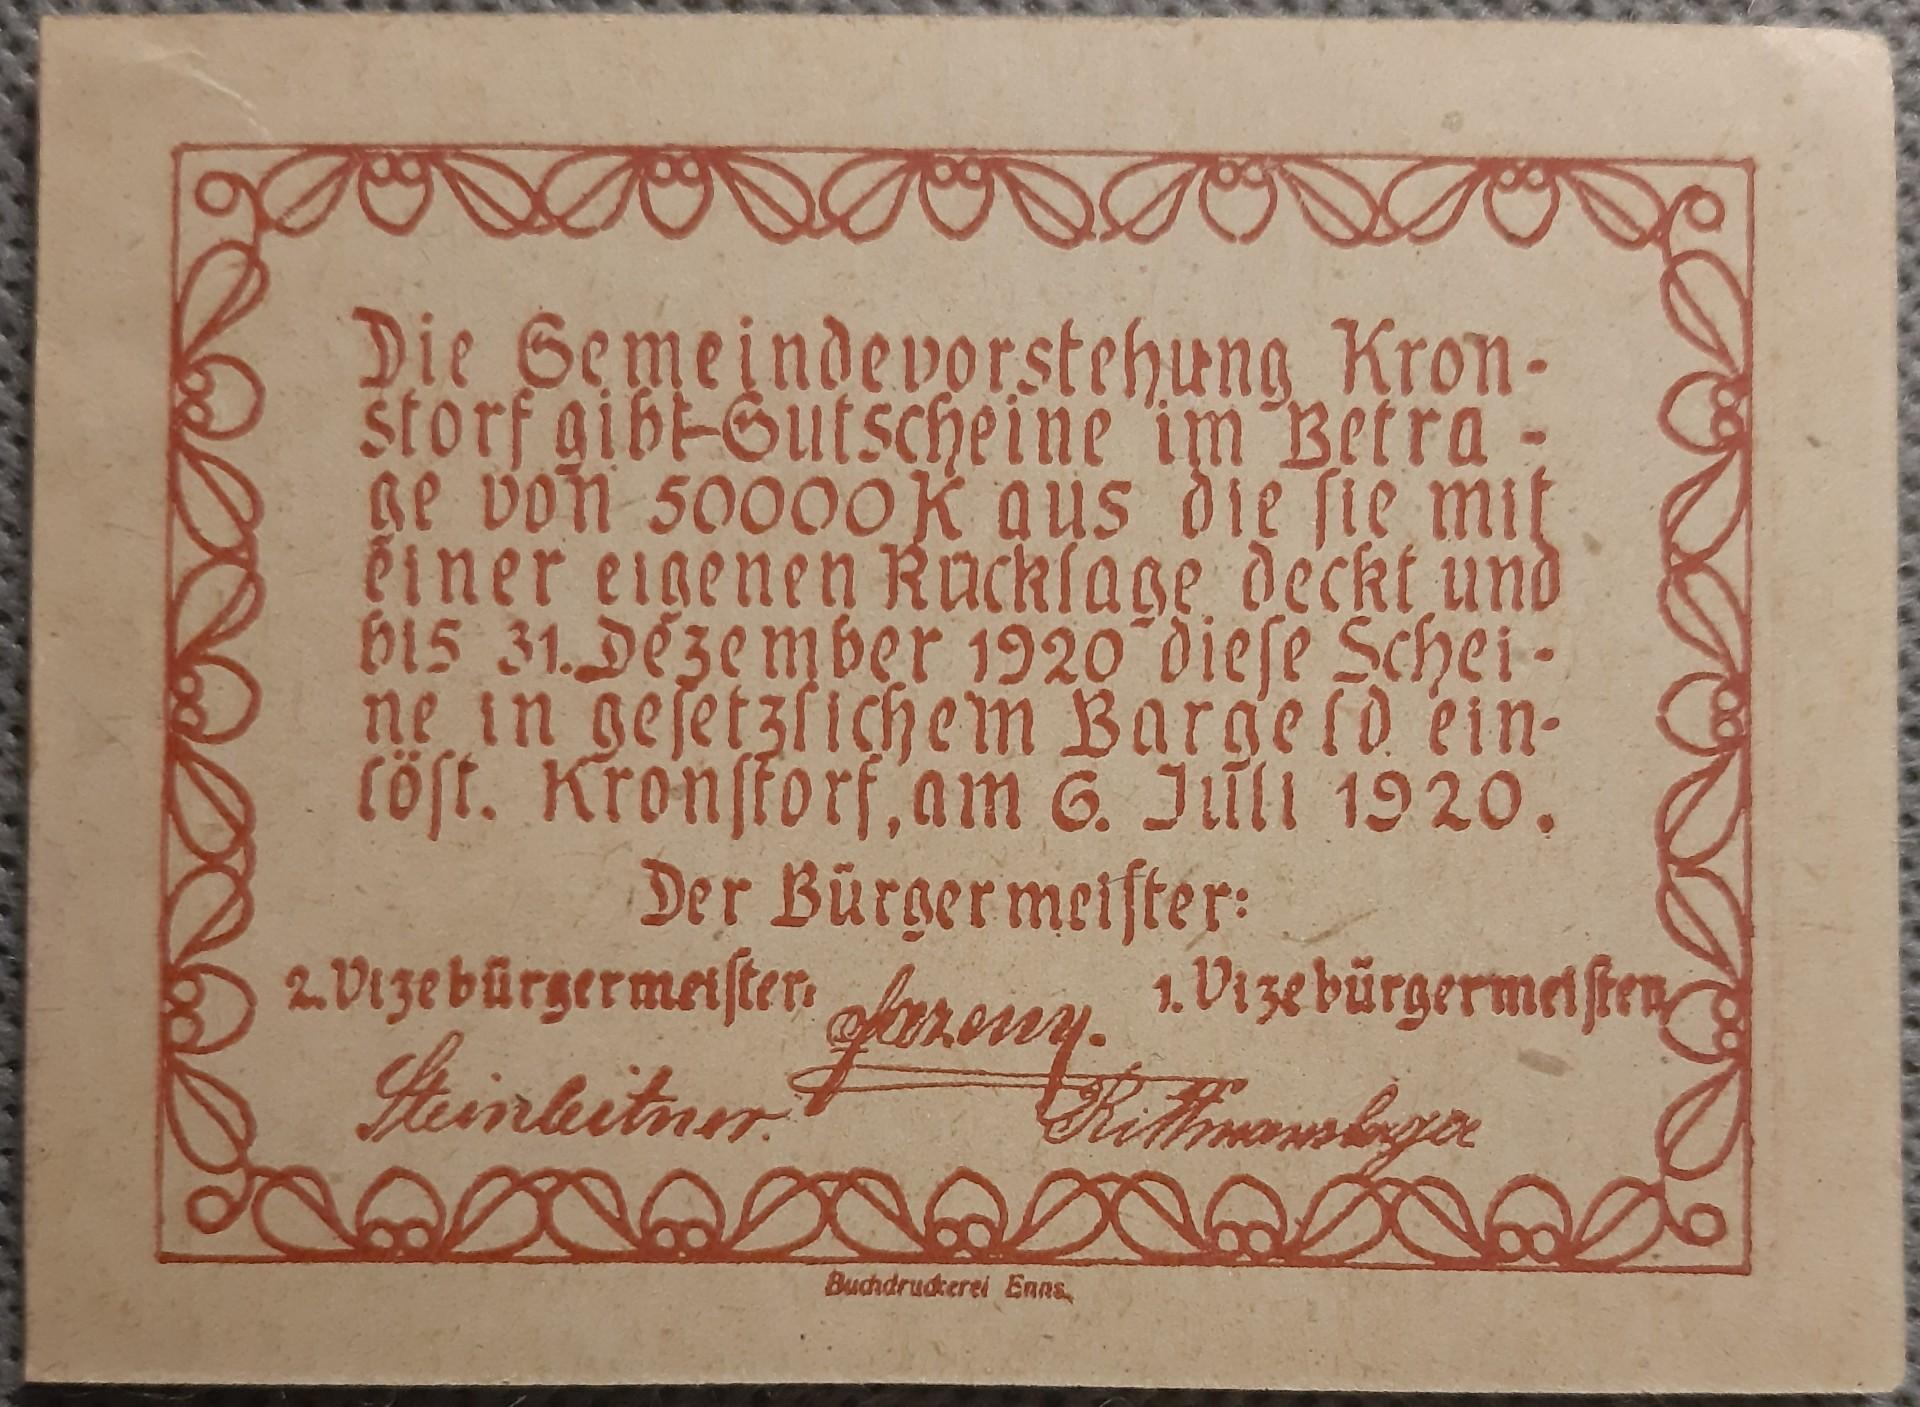 Die Gemeindevorstehung Kron-
storf gibt Gutscheine im Betra-
ge von 50000 K aus die sie mit
einer eigenen Rücklage deckt und
bis 31. Dezember 1920 diese Schei-
ne in gesetzlichem Bargeld ein-
löst. Kronstorf, am 6. Juli 1920.
Der Bürgermeister:
2. Vizebürgermeister: 1. Vizebürgermeister:
Steinleitner.
Buchdruckerei Enns.